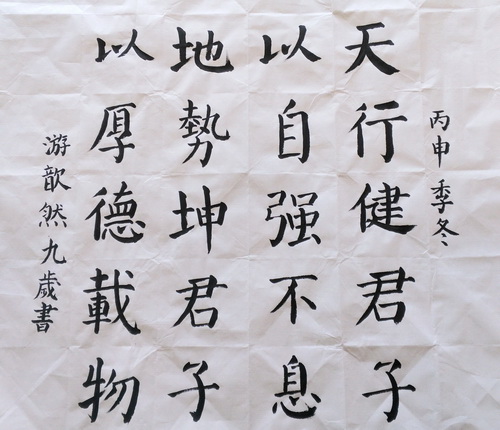 丙申季冬
天行健君子
以自强不息
地勢坤君子
以厚德載物
游歆然九歲書